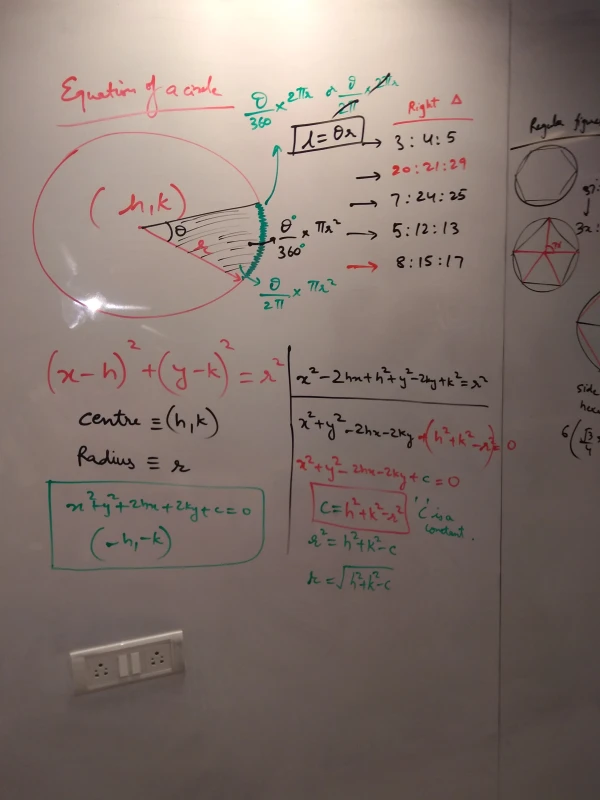 Equation of a circle
θ/360 × 2πr or θ/2π × 2πr
l = θr
(h, k)
θ
r
θ°/360° × πr²
θ/2π × πr²
Right Δ
→ 3 : 4 : 5
→ 20 : 21 : 29
→ 7 : 24 : 25
→ 5 : 12 : 13
→ 8 : 15 : 17
(x-h)² + (y-k)² = r²
centre ≡ (h, k)
Radius ≡ r
x² + y² + 2hx + 2ky + c = 0
(-h, -k)
x² - 2hx + h² + y² - 2ky + k² = r²
x² + y² - 2hx - 2ky + (h² + k² - r²) = 0
x² + y² - 2hx - 2ky + c = 0
c = h² + k² - r²
'c' is a
constant.
r² = h² + k² - c
r = √h² + k² - c
Regular
side
6(√3/4